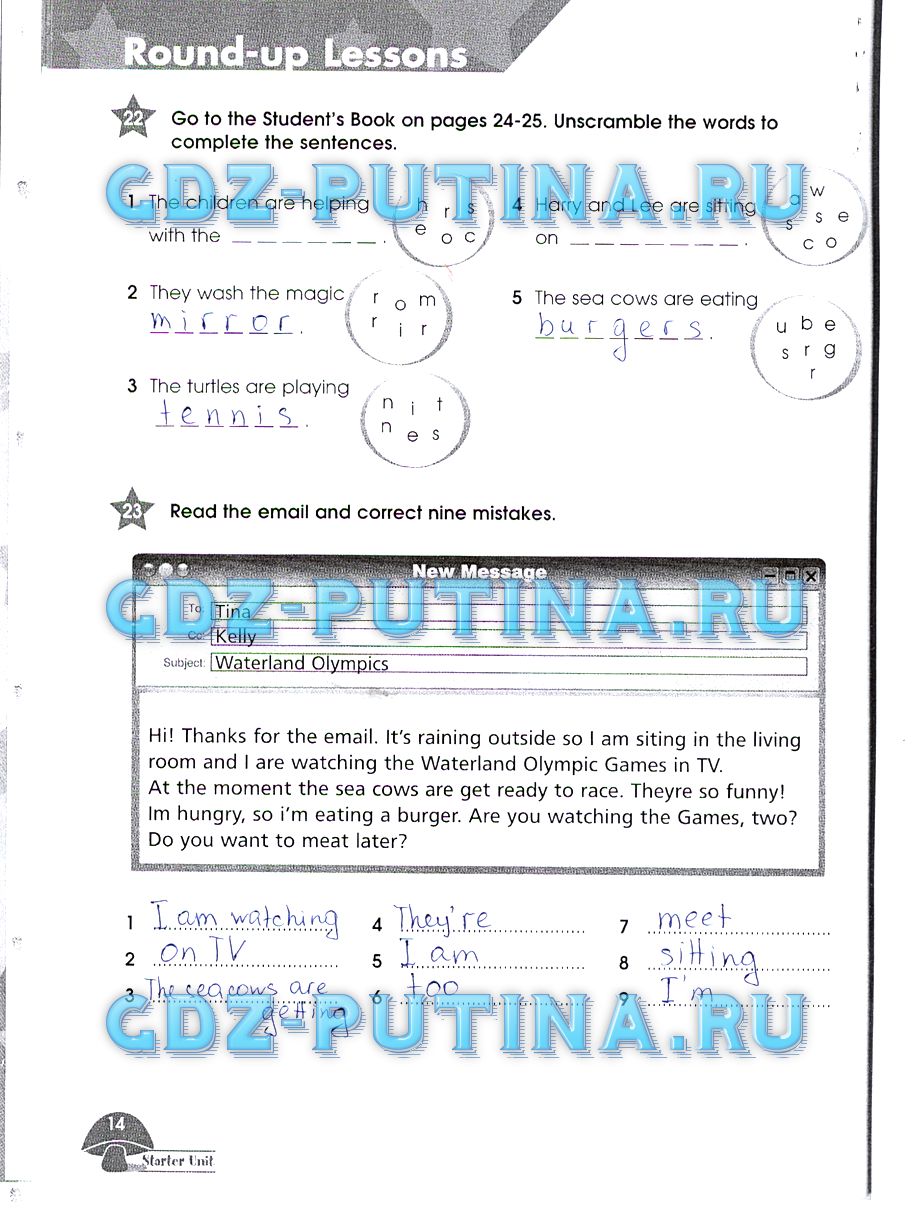 Round-up Lessons
22 Go to the Student's Book on pages 24-25. Unscramble the words to
complete the sentences.
GDZ-PUTINA.RU
1 The children are helping
with the _ _ _ _ _ _ .
h r s
e o c
2 They wash the magic
mirror.
r o m
r i r
3 The turtles are playing
tennis.
n i t
n e s
4 Harry and Lee are sitting
on _ _ _ _ _ _ _ .
w
s s e
c o
5 The sea cows are eating
burgers.
u b e
s r g
r
23 Read the email and correct nine mistakes.
New Message
GDZ-PUTINA.RU
To: Tina
Cc: Kelly
Subject: Waterland Olympics
Hi! Thanks for the email. It's raining outside so I am siting in the living
room and I are watching the Waterland Olympic Games in TV.
At the moment the sea cows are get ready to race. Theyre so funny!
Im hungry, so i'm eating a burger. Are you watching the Games, two?
Do you want to meat later?
1 I am watching
2 on TV
3 The sea cows are
getting
4 They're
5 I am
6 too
7 meet
8 sitting
9 I'm
GDZ-PUTINA.RU
14
Starter Unit